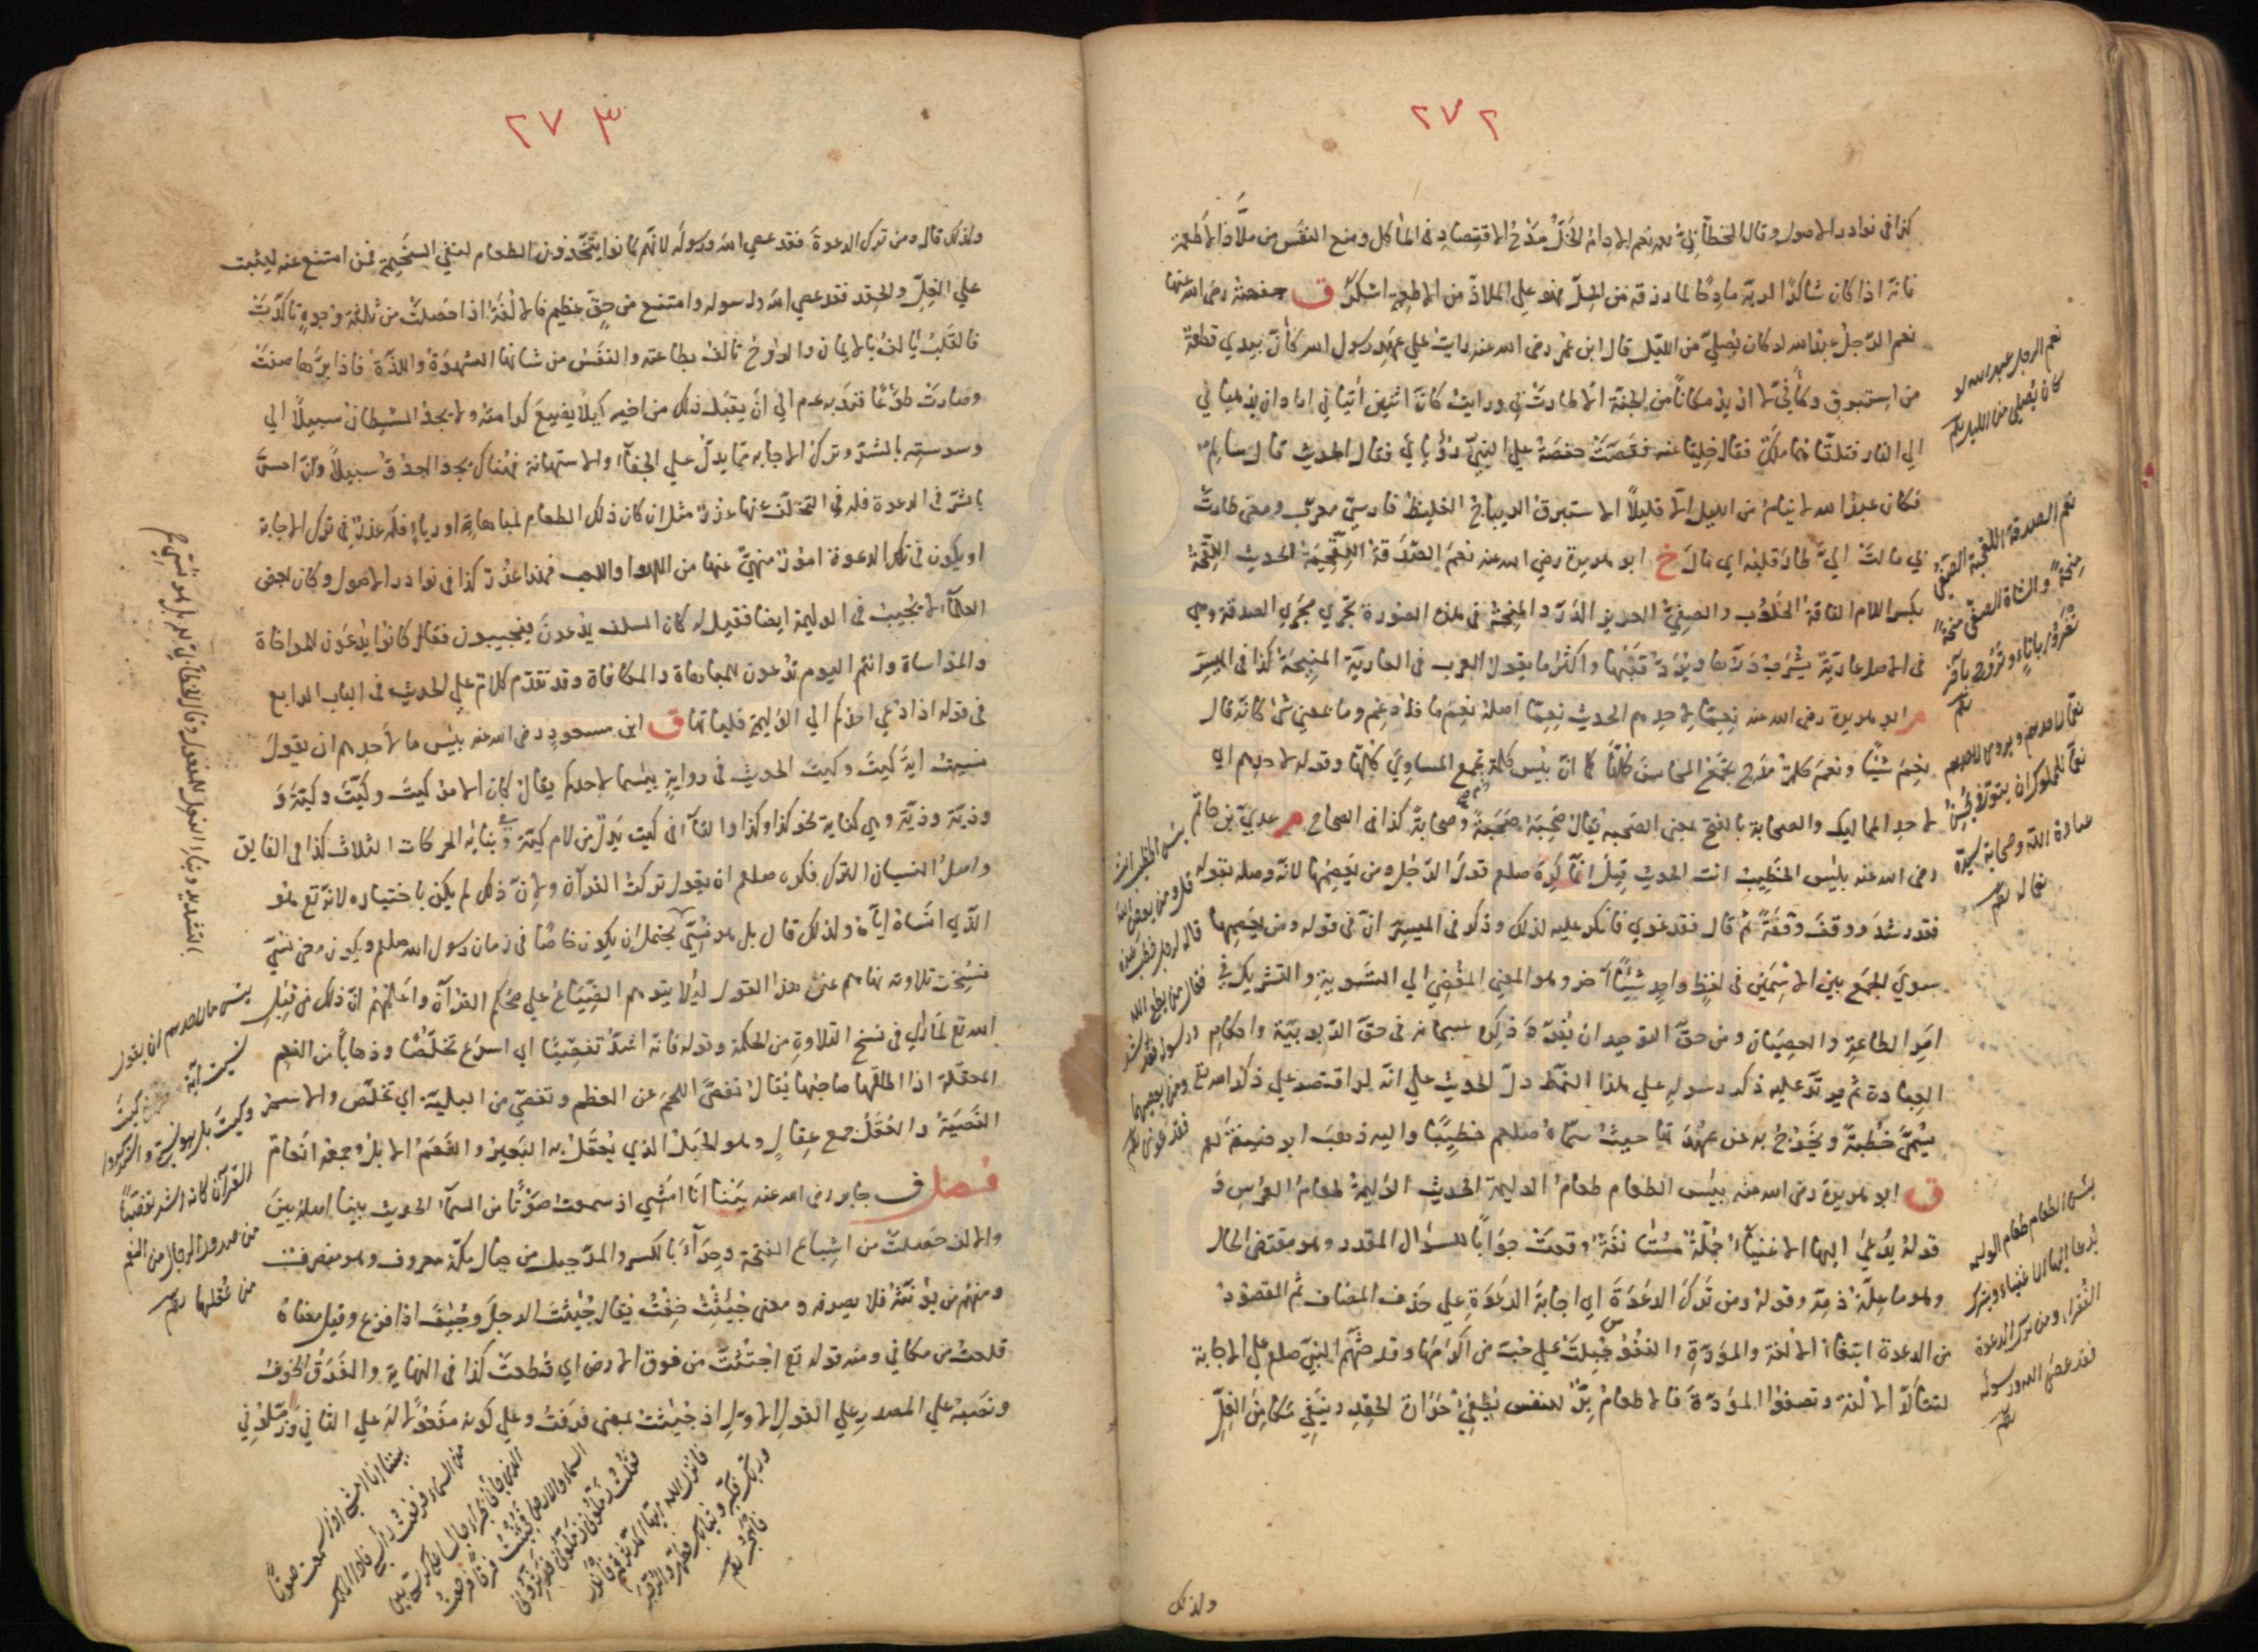 ٢٧٢
كذا في نوادر الاصول وقال الخطابي رحمه نعم الادام الخل مدح الاقتصاد في المأكل ومنع النفس من ملاذ الاطعمة
فانه اذا كان شاكرا لربه مادحا لما رزقه من الخل فهو علي الملاذ من الاطعمة اشكر ق حفصة رضي الله عنها
نعم الرجل عبد الله لو كان يصلي من الليل قال ابن عمر رضي الله عنه رايت علي عهد رسول الله كأن بيدي قطعة
من استبرق وكأني لا اريد مكانا من الجنة الا طارت بي ورايت كان اثنين اتياني ارادا ان يذهبا بي
الي النار فتلقاهما ملك فقال خليا عنه فقصت حفصة علي النبي رؤياي فقال الحديث قال سالم
فكان عبد الله لا ينام من الليل الا قليلا الاستبرق الديباج الغليظ فارسي معرب ومعنى طارت
بي مالت الي طار قلبه اي مال خ ابو هريرة رضي الله عنه نعم الصدقة اللقحة الحديث اللقحة
بكسر اللام الناقة الحلوب والصفي الغزير الدر والمنحة في هذه الصورة تجري مجري الصدقة وهي
في الاصل عارية يشرب درها ويرد رقبتها واكثر ما يقول العرب في العارية المنيحة كذا في الميسر
م ابو هريرة رضي الله عنه نعما لاحدهم الحديث نعما اصله نعم ما فادغم وما بمعنى شئ كانه قال
نعم شيئا ونعم كلمة مدح تجمع المحاسن كلها كما ان بئس كلمة تجمع المساوي كلها وقوله لاحدهم اي
لاحد المماليك والصحابة بالفتح بمعنى الصحبة يقال صحبه صحبة وصحابة كذا في الصحاح م عدي بن حاتم
رضي الله عنه بئس الخطيب انت الحديث قيل انما كره صلعم قول الرجل ومن يعصهما لانه وصله بقوله
فقد رشد ووقف وقفة ثم قال فقد غوي فانكر عليه لذلك وذكر في الميسر ان في قوله ومن يعصهما
سوي الجمع بين الاسمين في لفظ واحد شيئا آخر وهو المعنى المفضي الي التسوية والتشريك في
امر الطاعة والعصيان ومن حق التوحيد ان يفرد ذكره سبحانه في حق الربوبية واحكام
العبادة ثم يرتد عليه ذكر رسوله علي هذا النمط دل الحديث علي انه لو اقتصر علي ذكر الله تع
يسمي خطبة ويخرج به عن عهدتها حيث سماه صلعم خطيبا واليه ذهب ابو حنيفة رحم
ق ابو هريرة رضي الله عنه بئس الطعام طعام الوليمة الحديث الوليمة طعام العرس و
قوله يدعى اليها الاغنياء جملة مستأنفة وقعت جوابا للسؤال المقدر وهو مقتضى الحال
وهو ما علة ذمه وقوله ومن ترك الدعوة اي اجابة الدعوة علي حذف المضاف ثم المقصود
من الدعوة ابتغاء الالفة والمودة والنفوس جبلت علي حب من اكرمها وقد حثهم النبي صلعم علي الاجابة
لتتأكد الالفة وتصفوا المودة فالاطعام بر للنفس يطفئ حرارة الحقد وينفي مكامن الغل
نعم الرجل عبد الله لو
كان يصلي من الليل
نعم الصدقة اللقحة الصفي
منحة والشاة الصفي منحة
تغدو باناء وتروح بآخر
نعما لاحدهم
نعما للمملوك ان يتوفى يحسن
عبادة الله وصحابة سيده
نعما له
بئس الخطيب انت
قل ومن يعص الله
فقد غوى
بئس الطعام طعام الوليمة
يدعا اليها الاغنياء ويترك
الفقراء ومن ترك الدعوة
فقد عصى الله ورسوله
ولذلك
٢٧٣
ولذلك قال ومن ترك الدعوة فقد عصي الله ورسوله لانهم كانوا يتخذون الطعام لنفي السخيمة فمن امتنع عنه ليثبت
علي الغل والحقد فقد عصي الله ورسوله وامتنع من حق عظيم فالالفة اذا حصلت من ثلثة وجوه تأكدت
فالقلب يألف بالايمان والروح تألف بطاعته والنفس من شانها الشهوة واللذة فاذا برها صفت
وصارت طوعا فندب عم الي ان يقبل ذلك من اخيه كيلا يضيع كرامته ولا يجد الشيطان سبيلا الي
وسوسته بالشر وترك الاجابة مما يدل علي الجفاء والاستهانة فهناك يجد العدو سبيلا وان احس
بالشر في الدعوة فله في التخلف عنها عذر مثل ان كان ذلك الطعام لمباهاة او رياء فله عذر في ترك الاجابة
او يكون في تلك الدعوة امور منهي عنها من اللهو واللعب فهذا عذر كذا في نوادر الاصول وكان بعض
العلماء لا يجيب في الوليمة ايضا فقيل له كان السلف يدعون فيجيبون فقال كانوا يدعون للمواخاة
والمواساة وانتم اليوم تدعون للمباهاة والمكافاة وقد تقدم كلام علي الحديث في الباب الرابع
في قوله اذا دعي احدكم الي الوليمة فلياتها ق ابن مسعود رضي الله عنه بئس ما لاحدهم ان يقول
نسيت اية كيت وكيت الحديث في رواية بئسما لاحدكم يقال كان الامر كيت وكيت وكية و
وذية وذية وهي كناية نحو كذا وكذا والتاء في كيت بدل من لام كية وبنائه الحركات الثلاث كذا في الفايق
واصل النسيان الترك فكره صلعم ان يقول تركت القرآن ولان ذلك لم يكن باختياره لانه تع هو
الذي انساه اياه ولذلك قال بل هو نسي يحتمل ان يكون خاصا في زمان رسول الله صلعم ويكون معنى نسي
نسخت تلاوته نهاهم عن هذا القول ليلا يتوهم الضياع علي محكم القرآن واعلمهم ان ذلك من قبل
الله تع لما رأي في نسخ التلاوة من الحكمة وقوله فانه اشد تفصيا اي اسرع تخلصا وذهابا من النعم
المعقلة اذا اطلقها صاحبها يقال تفصى اللحم عن العظم وتفصي من البلية اي تخلص والاسم
الفصية والعقل جمع عقال وهو الحبل الذي يعقل به البعير والنعم الابل وجمعه انعام
فصل ق جابر رضي الله عنه بينا انا امشي اذ سمعت صوتا من السماء الحديث بينا اصله بين
والالف حصلت من اشباع الفتحة وحراء بالكسر والمد جبل من جبال مكة معروف وهو منصرف
ومنهم من يؤنثه فلا يصرفه ومعنى جئثت خفت يقال جئث الرجل وجئف اذا فزع وقيل معناه
قلعت من مكاني ومنه قوله تع اجتثت من فوق الارض اي قطعت كذا في النهاية والفرق الخوف
ونصبه علي المصدر علي القول الاول اذ جئثت بمعنى فرقت وعلي كونه مفعولا له علي الثاني وزملوني
بئس ما لاحدهم ان يقول
نسيت آية كيت
وكيت بل هو نسي واستذكروا
القرآن فانه اشد تفصيا
من صدور الرجال من النعم
من عقلها
بينا انا امشي اذ سمعت صوتا
من السماء فرفعت رأسي فاذا الملك
الذي جاءني بحراء جالسا علي كرسي بين
السماء والارض فجئثت فرقا فرجعت
فقلت زملوني زملوني فدثروني
فانزل الله يايها المدثر قم فانذر
وربك فكبر وثيابك فطهر والرجز
فاهجر